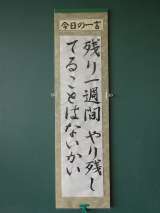 今日の一言
残り一週間 やり残し
てることはないかい